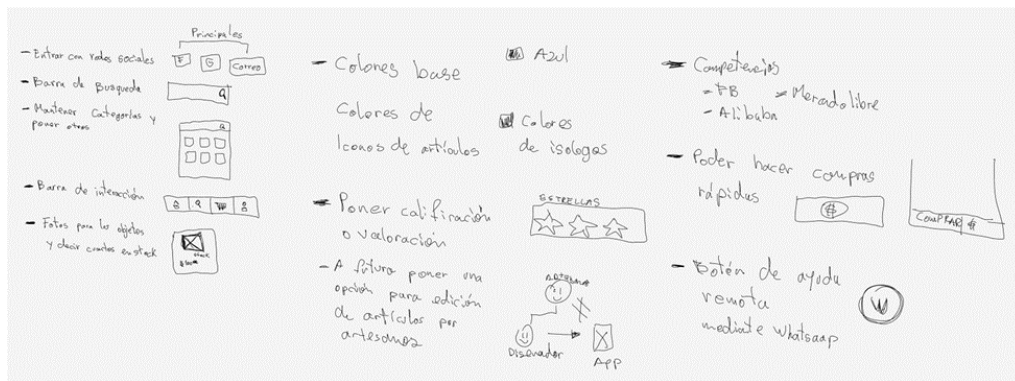 Principales
- Entrar con redes sociales
F G Correo
- Barra de Busqueda
- Mantener Categorías y
poner otros
- Barra de interacción
- Fotos para los objetos
y decir cuantos en stock
stock
- Colores base
Azul
Colores de
Iconos de artículos
Colores
de isologos
- Poner calificación
o valoración
ESTRELLAS
- A futuro poner una
opción para edición
de artículos por
artesanos
Diseñador
APP
- Competencias
- FB - Mercado libre
- Alibaba
- Poder hacer compras
rápidas
$
COMPRAR $
- Botón de ayuda
remota
mediate whatsaap
W